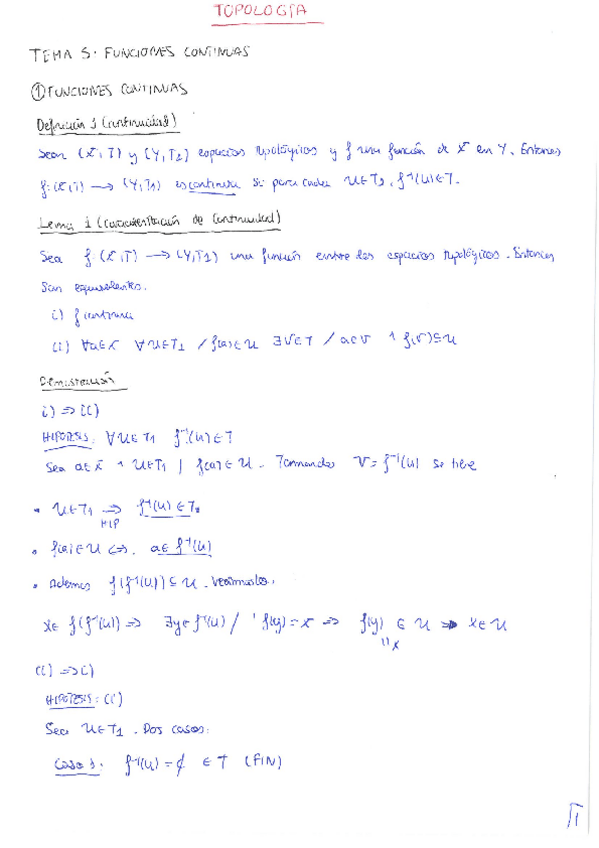 TOPOLOGÍA
TEMA 5. FUNCIONES CONTINUAS
① FUNCIONES CONTINUAS
Definición 1 (continuidad)
Sean (X,T) y (Y,T₁) espacios topológicos y f una función de X en Y. Entonces
f:(X,T) → (Y,T₁) es continua si para cada U∈T₁, f⁻¹(U)∈T.
Lema 1 (caracterización de continuidad)
Sea f:(X,T) → (Y,T1) una función entre los espacios topológicos. Entonces
son equivalentes:
i) f continua
ii) ∀a∈X ∀U∈T₁ / f(a)∈U ∃V∈T / a∈V ∧ f(V)⊆U
Demostración
i) ⇒ ii)
HIPÓTESIS: ∀U∈T₁ f⁻¹(U)∈T
Sea a∈X ∧ U∈T₁ | f(a)∈U. Tomando V=f⁻¹(U) se tiene
• U∈T₁ ⇒ f⁻¹(U)∈T
HIP
• f(a)∈U ⇔ a∈f⁻¹(U)
• Además f(f⁻¹(U))⊆U. Veámoslo.
x∈f(f⁻¹(U)) ⇒ ∃y∈f⁻¹(U) / f(y)=x ⇒ f(y)∈U ⇒ x∈U
॥x
ii) ⇒ i)
HIPÓTESIS: ii)
Sea U∈T₁. Dos casos:
Caso 1: f⁻¹(U)=∅ ∈T (FIN)